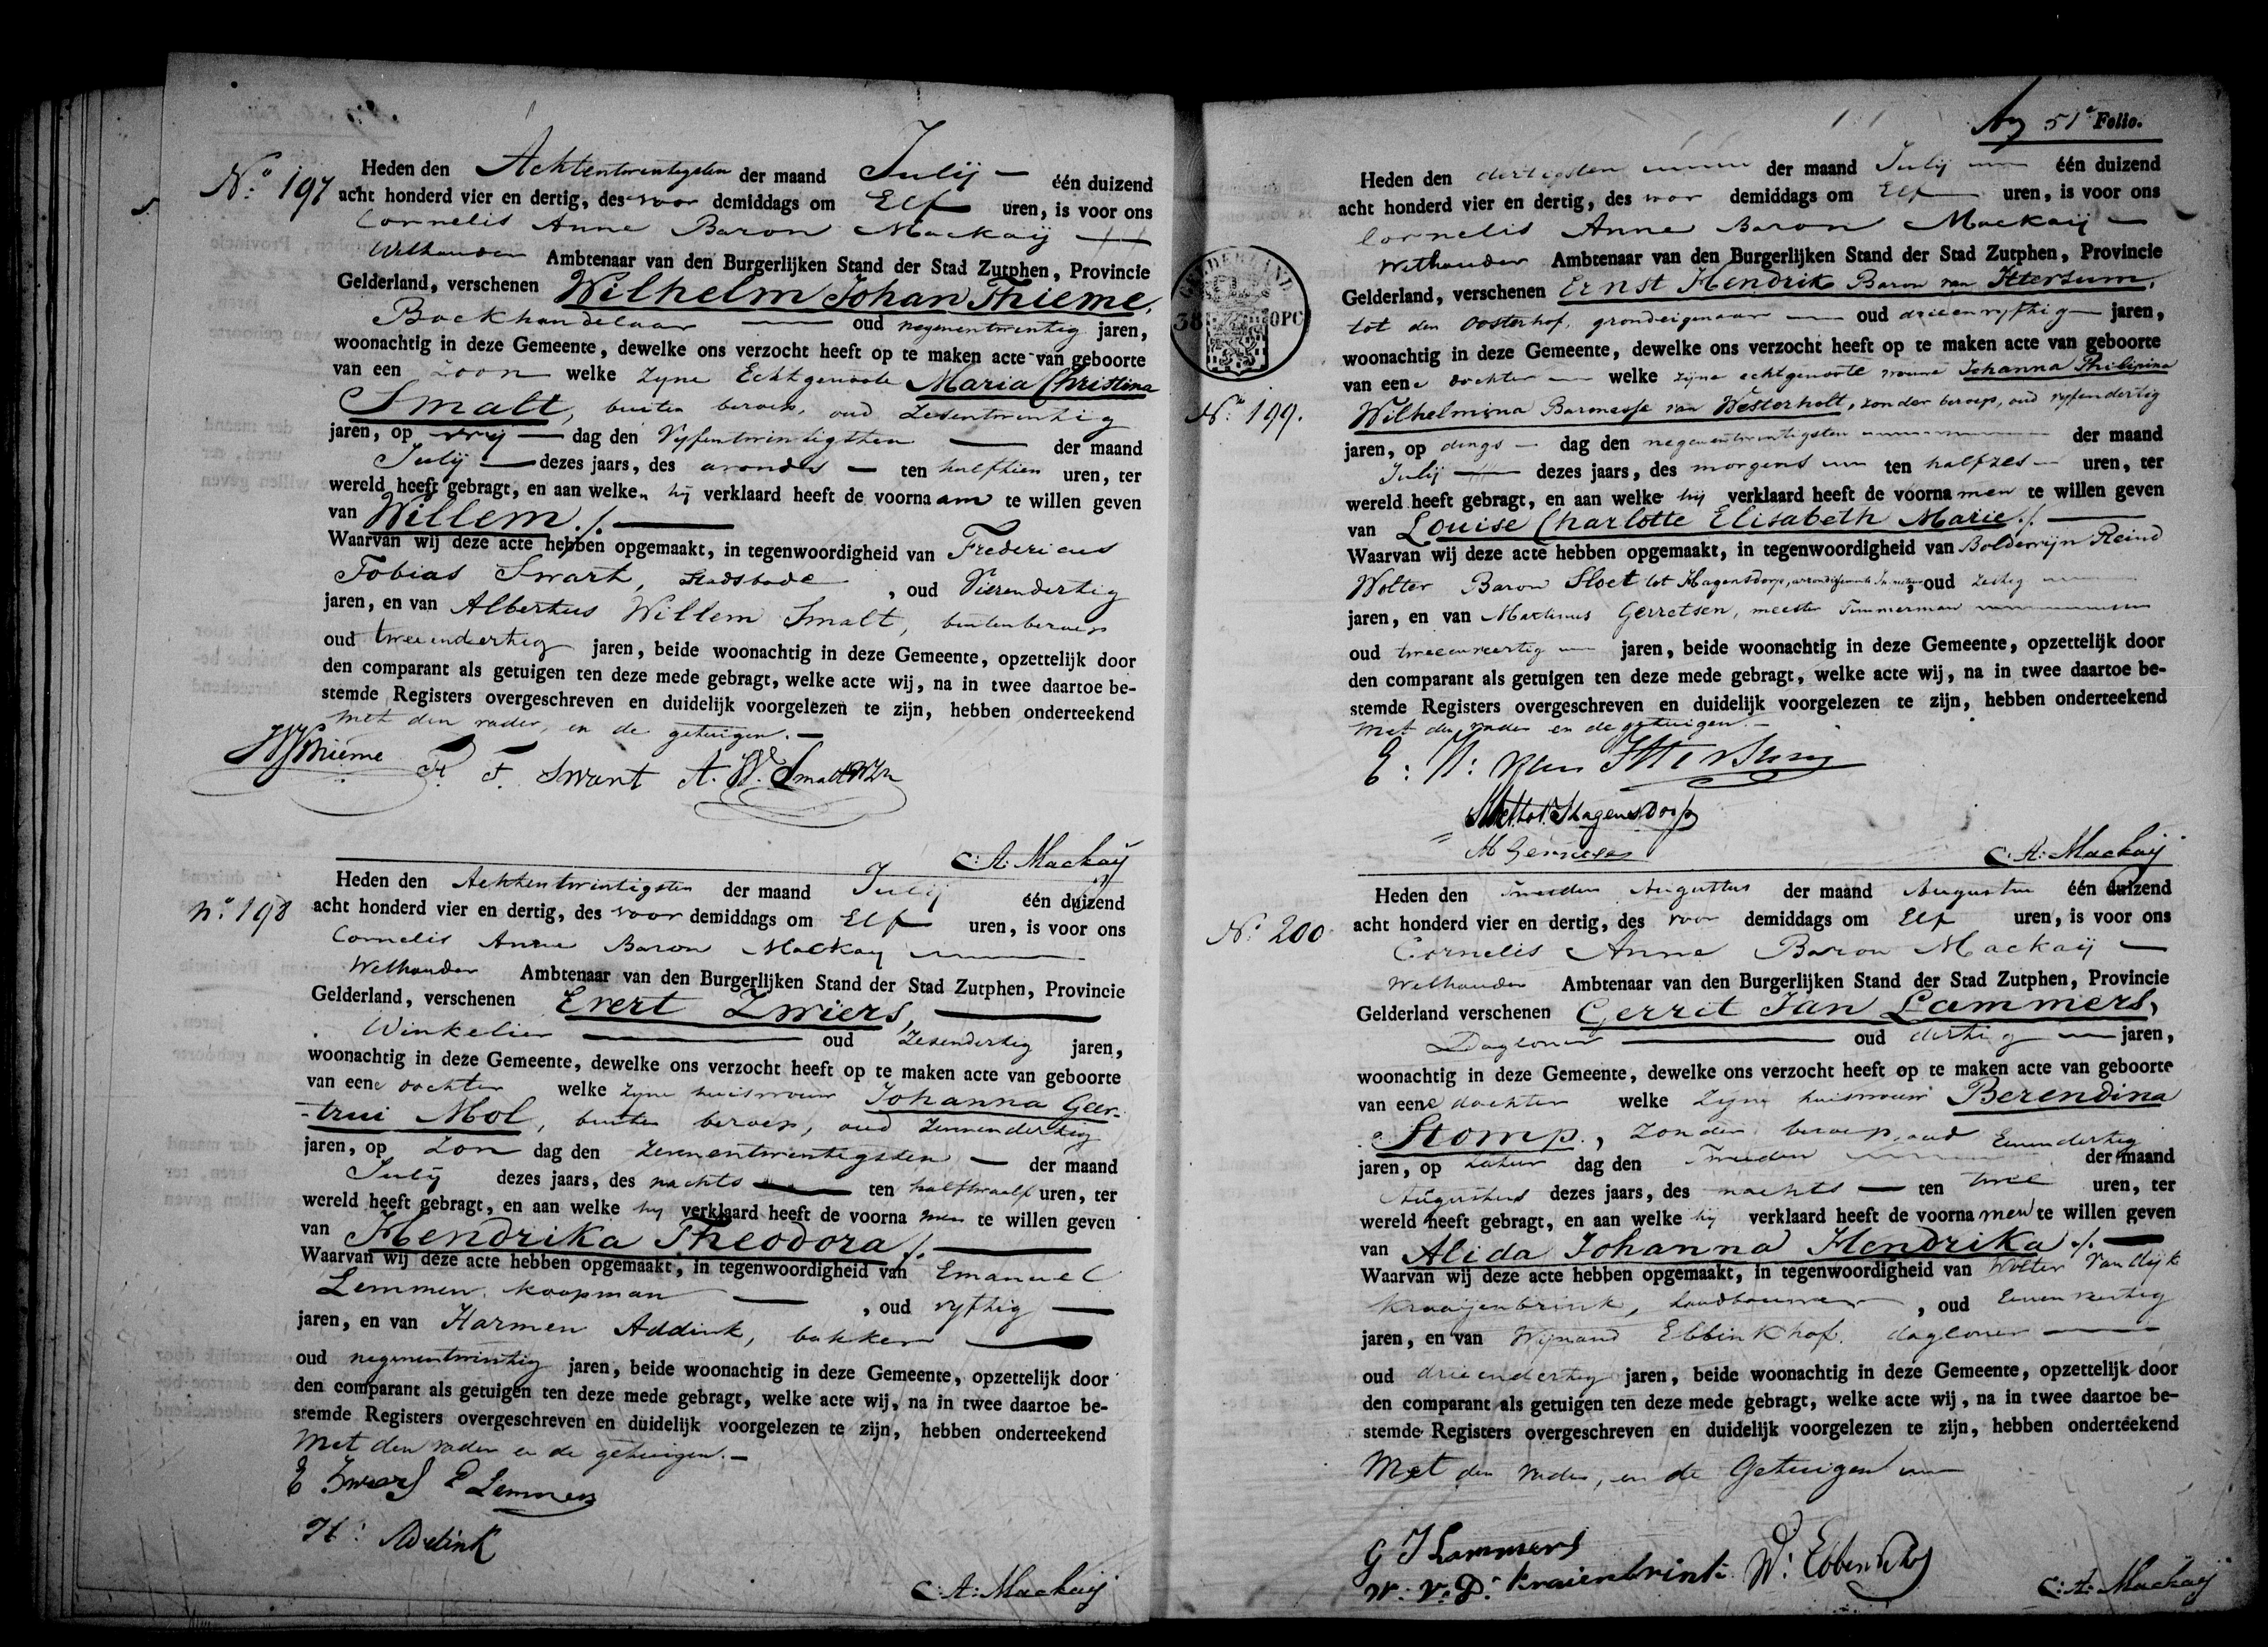 Nº 197
Heden den Achtentwintigsten der maand Julij één duizend
acht honderd vier en dertig, des voor demiddags om Elf uren, is voor ons
Cornelis Anne Baron Mackaij
Wethouder Ambtenaar van den Burgerlijken Stand der Stad Zutphen, Provincie
Gelderland, verschenen Wilhelm Johan Thieme,
Boekhandelaar oud negenentwintig jaren,
woonachtig in deze Gemeente, dewelke ons verzocht heeft op te maken acte van geboorte
van een Zoon welke zyne Echtgenoote Maria Christina
Smalt, buiten beroep, oud Zesentwintig
jaren, op vrij dag den Vyfentwintigsten der maand
Julij dezes jaars, des avonds ten halftien uren, ter
wereld heeft gebragt, en aan welken hij verklaard heeft de voornaam te willen geven
van Willem ./.
Waarvan wij deze acte hebben opgemaakt, in tegenwoordigheid van Fredericus
Tobias Swart, Stadsbode, oud Vierendertig
jaren, en van Albertus Willem Smalt, buiten beroep
oud tweeendertig jaren, beide woonachtig in deze Gemeente, opzettelijk door
den comparant als getuigen ten deze mede gebragt, welke acte wij, na in twee daartoe be-
stemde Registers overgeschreven en duidelijk voorgelezen te zijn, hebben onderteekend
met den vader, en de getuigen.
WJThieme F. T. Swart A. W. Smalt
C: A: Mackaij
Nº 198
Heden den Achtentwintigsten der maand Julij één duizend
acht honderd vier en dertig, des voor demiddags om Elf uren, is voor ons
Cornelis Anne Baron Mackay
Wethouder Ambtenaar van den Burgerlijken Stand der Stad Zutphen, Provincie
Gelderland, verschenen Evert Zwiers,
Winkelier oud Zesendertig jaren,
woonachtig in deze Gemeente, dewelke ons verzocht heeft op te maken acte van geboorte
van eene dochter welke zyne huisvrouw Johanna Geer-
-trui Mol, buiten beroep, oud Zevenendertig
jaren, op Zon dag den Zevenentwintigsten der maand
Julij dezes jaars, des nachts ten halftwaalf uren, ter
wereld heeft gebragt, en aan welke hij verklaard heeft de voornamen te willen geven
van Hendrika Theodora ./.
Waarvan wij deze acte hebben opgemaakt, in tegenwoordigheid van Emanuel
Lemmen, koopman, oud vyftig
jaren, en van Harmen Addink, bakker
oud negenentwintig jaren, beide woonachtig in deze Gemeente, opzettelijk door
den comparant als getuigen ten deze mede gebragt, welke acte wij, na in twee daartoe be-
stemde Registers overgeschreven en duidelijk voorgelezen te zijn, hebben onderteekend
Met den vader en de getuigen.
E Zwiers E Lemmen
H: Addink
C: A: Mackaij
51e Folio.
GELDERLAND
38 OPC
Nº 199.
Heden den dertigsten der maand Julij één duizend
acht honderd vier en dertig, des voor demiddags om Elf uren, is voor ons
Cornelis Anne Baron Mackaij
Wethouder Ambtenaar van den Burgerlijken Stand der Stad Zutphen, Provincie
Gelderland, verschenen Ernst Hendrik Baron van Ittersum,
tot den Oosterhof, grondeigenaar oud drieenvyftig jaren,
woonachtig in deze Gemeente, dewelke ons verzocht heeft op te maken acte van geboorte
van eene dochter welke zijne echtgenoote vrouwe Johanna Philipina
Wilhelmina Baronesse van Westerholt, zonder beroep, oud vyfendertig
jaren, op dings dag den negenentwintigsten der maand
Julij dezes jaars, des morgens ten halfzes uren, ter
wereld heeft gebragt, en aan welke hij verklaard heeft de voornamen te willen geven
van Louise Charlotte Elisabeth Marie ./.
Waarvan wij deze acte hebben opgemaakt, in tegenwoordigheid van Boldewijn Reind
Wolter Baron Sloet tot Hagensdorp, oud zestig
jaren, en van Martinus Gerretsen, meester Timmerman
oud tweeenveertig jaren, beide woonachtig in deze Gemeente, opzettelijk door
den comparant als getuigen ten deze mede gebragt, welke acte wij, na in twee daartoe be-
stemde Registers overgeschreven en duidelijk voorgelezen te zijn, hebben onderteekend
Met den vader en de getuigen.
E: H: van Ittersum
Sloet tot Hagensdorp
C: A: Mackaij
Nº 200
Heden den Tweeden Augustus der maand Augustus één duizend
acht honderd vier en dertig, des voor demiddags om Elf uren, is voor ons
Cornelis Anne Baron Mackaij
Wethouder Ambtenaar van den Burgerlijken Stand der Stad Zutphen, Provincie
Gelderland verschenen Gerrit Jan Lammers,
Dagloner oud dertig jaren,
woonachtig in deze Gemeente, dewelke ons verzocht heeft op te maken acte van geboorte
van eene dochter welke Zijne huisvrouw Berendina
Stomp, zonder beroep, oud Eenendertig
jaren, op Zatur dag den Tweeden der maand
Augustus dezes jaars, des nachts ten twee uren, ter
wereld heeft gebragt, en aan welke hij verklaard heeft de voornamen te willen geven
van Alida Johanna Hendrika ./.
Waarvan wij deze acte hebben opgemaakt, in tegenwoordigheid van Wolter van dijk
Kraaijenbrink, Landbouwer, oud Eenenveertig
jaren, en van Wijnand Ebbinkhof, dagloner
oud drieendertig jaren, beide woonachtig in deze Gemeente, opzettelijk door
den comparant als getuigen ten deze mede gebragt, welke acte wij, na in twee daartoe be-
stemde Registers overgeschreven en duidelijk voorgelezen te zijn, hebben onderteekend
Met den vader, en de Getuigen
G J Lammers
W: V: D: Kraienbrink W: Ebbenkhof
C: A: Mackaij